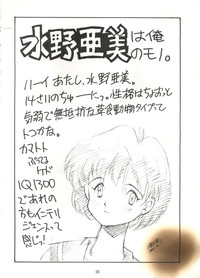 水野亜美は俺のモノ。
ハーイあたし、水野亜美。
14さいのちゅー。性格はちょおっと
気弱で無抵抗な草食動物タイプって
トコかな。
カマトト
ぶってる
ケド
IQ1300
であれの
方もインテリ
ジェンスって
感じッ!